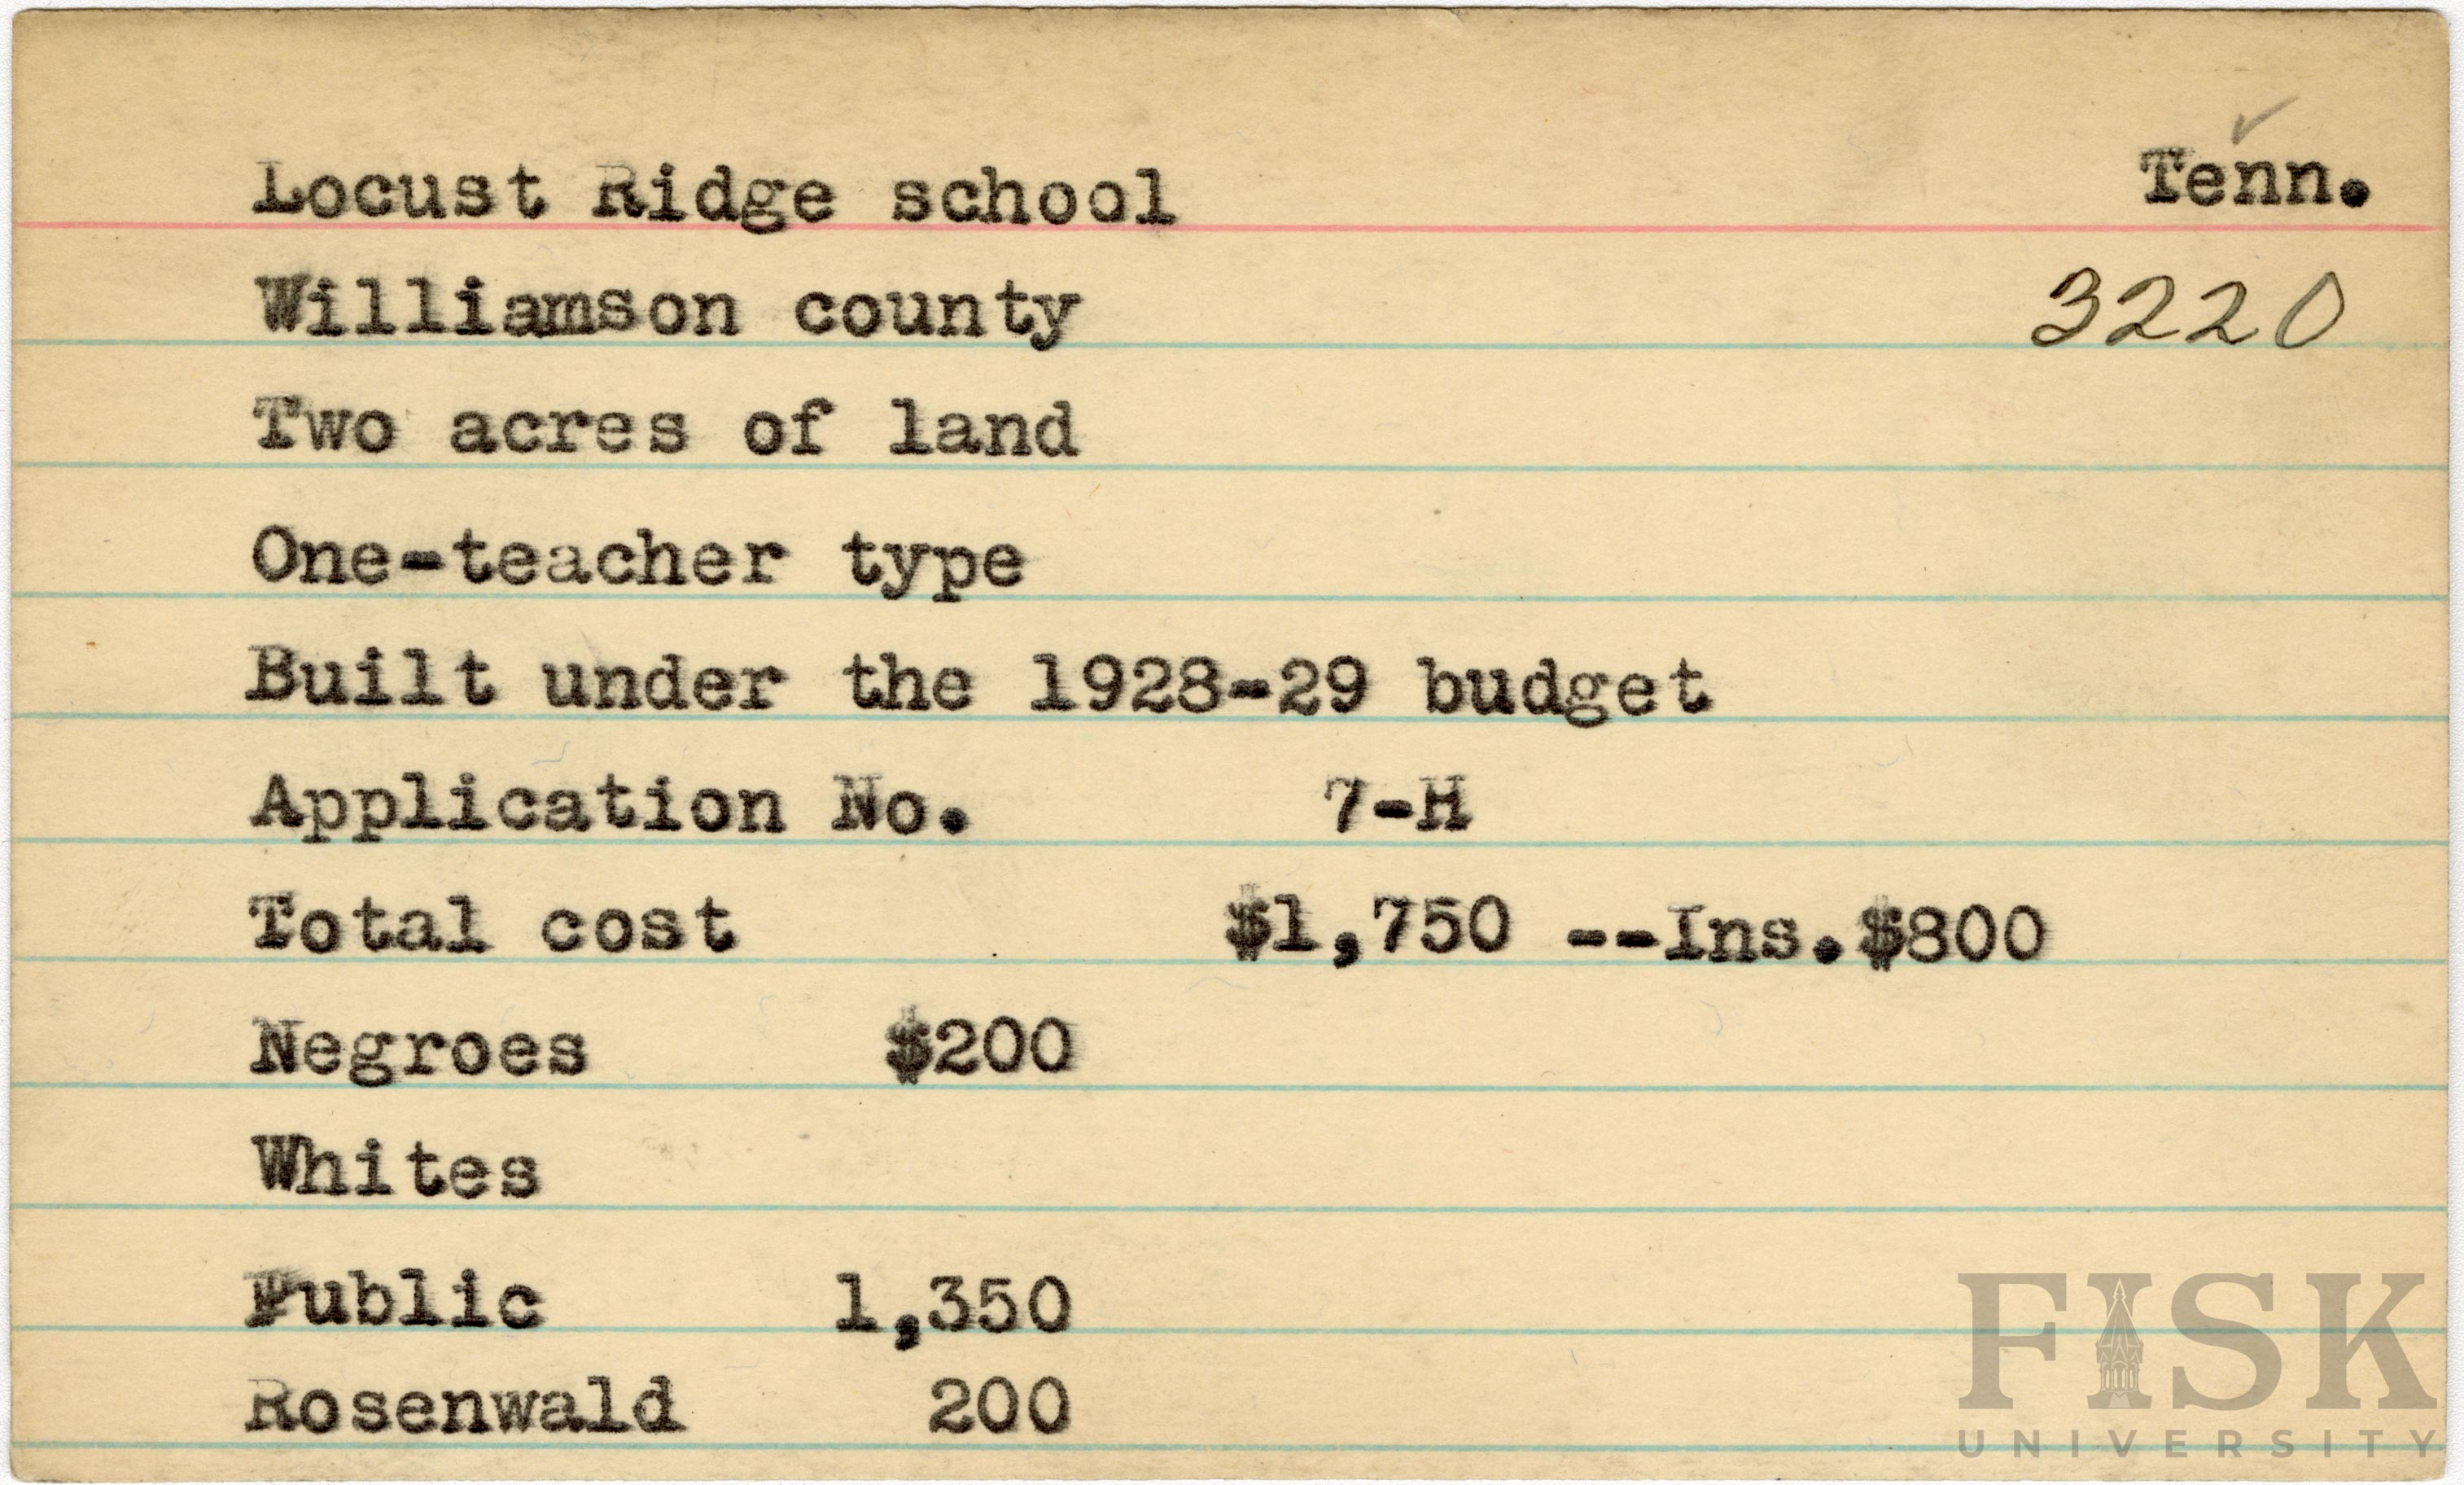 Locust Ridge school Tenn.
Williamson county 3220
Two acres of land
One-teacher type
Built under the 1928-29 budget
Application No. 7-H
Total cost $1,750 --Ins.$800
Negroes $200
Whites
Public 1,350
Rosenwald 200
FISK
UNIVERSITY